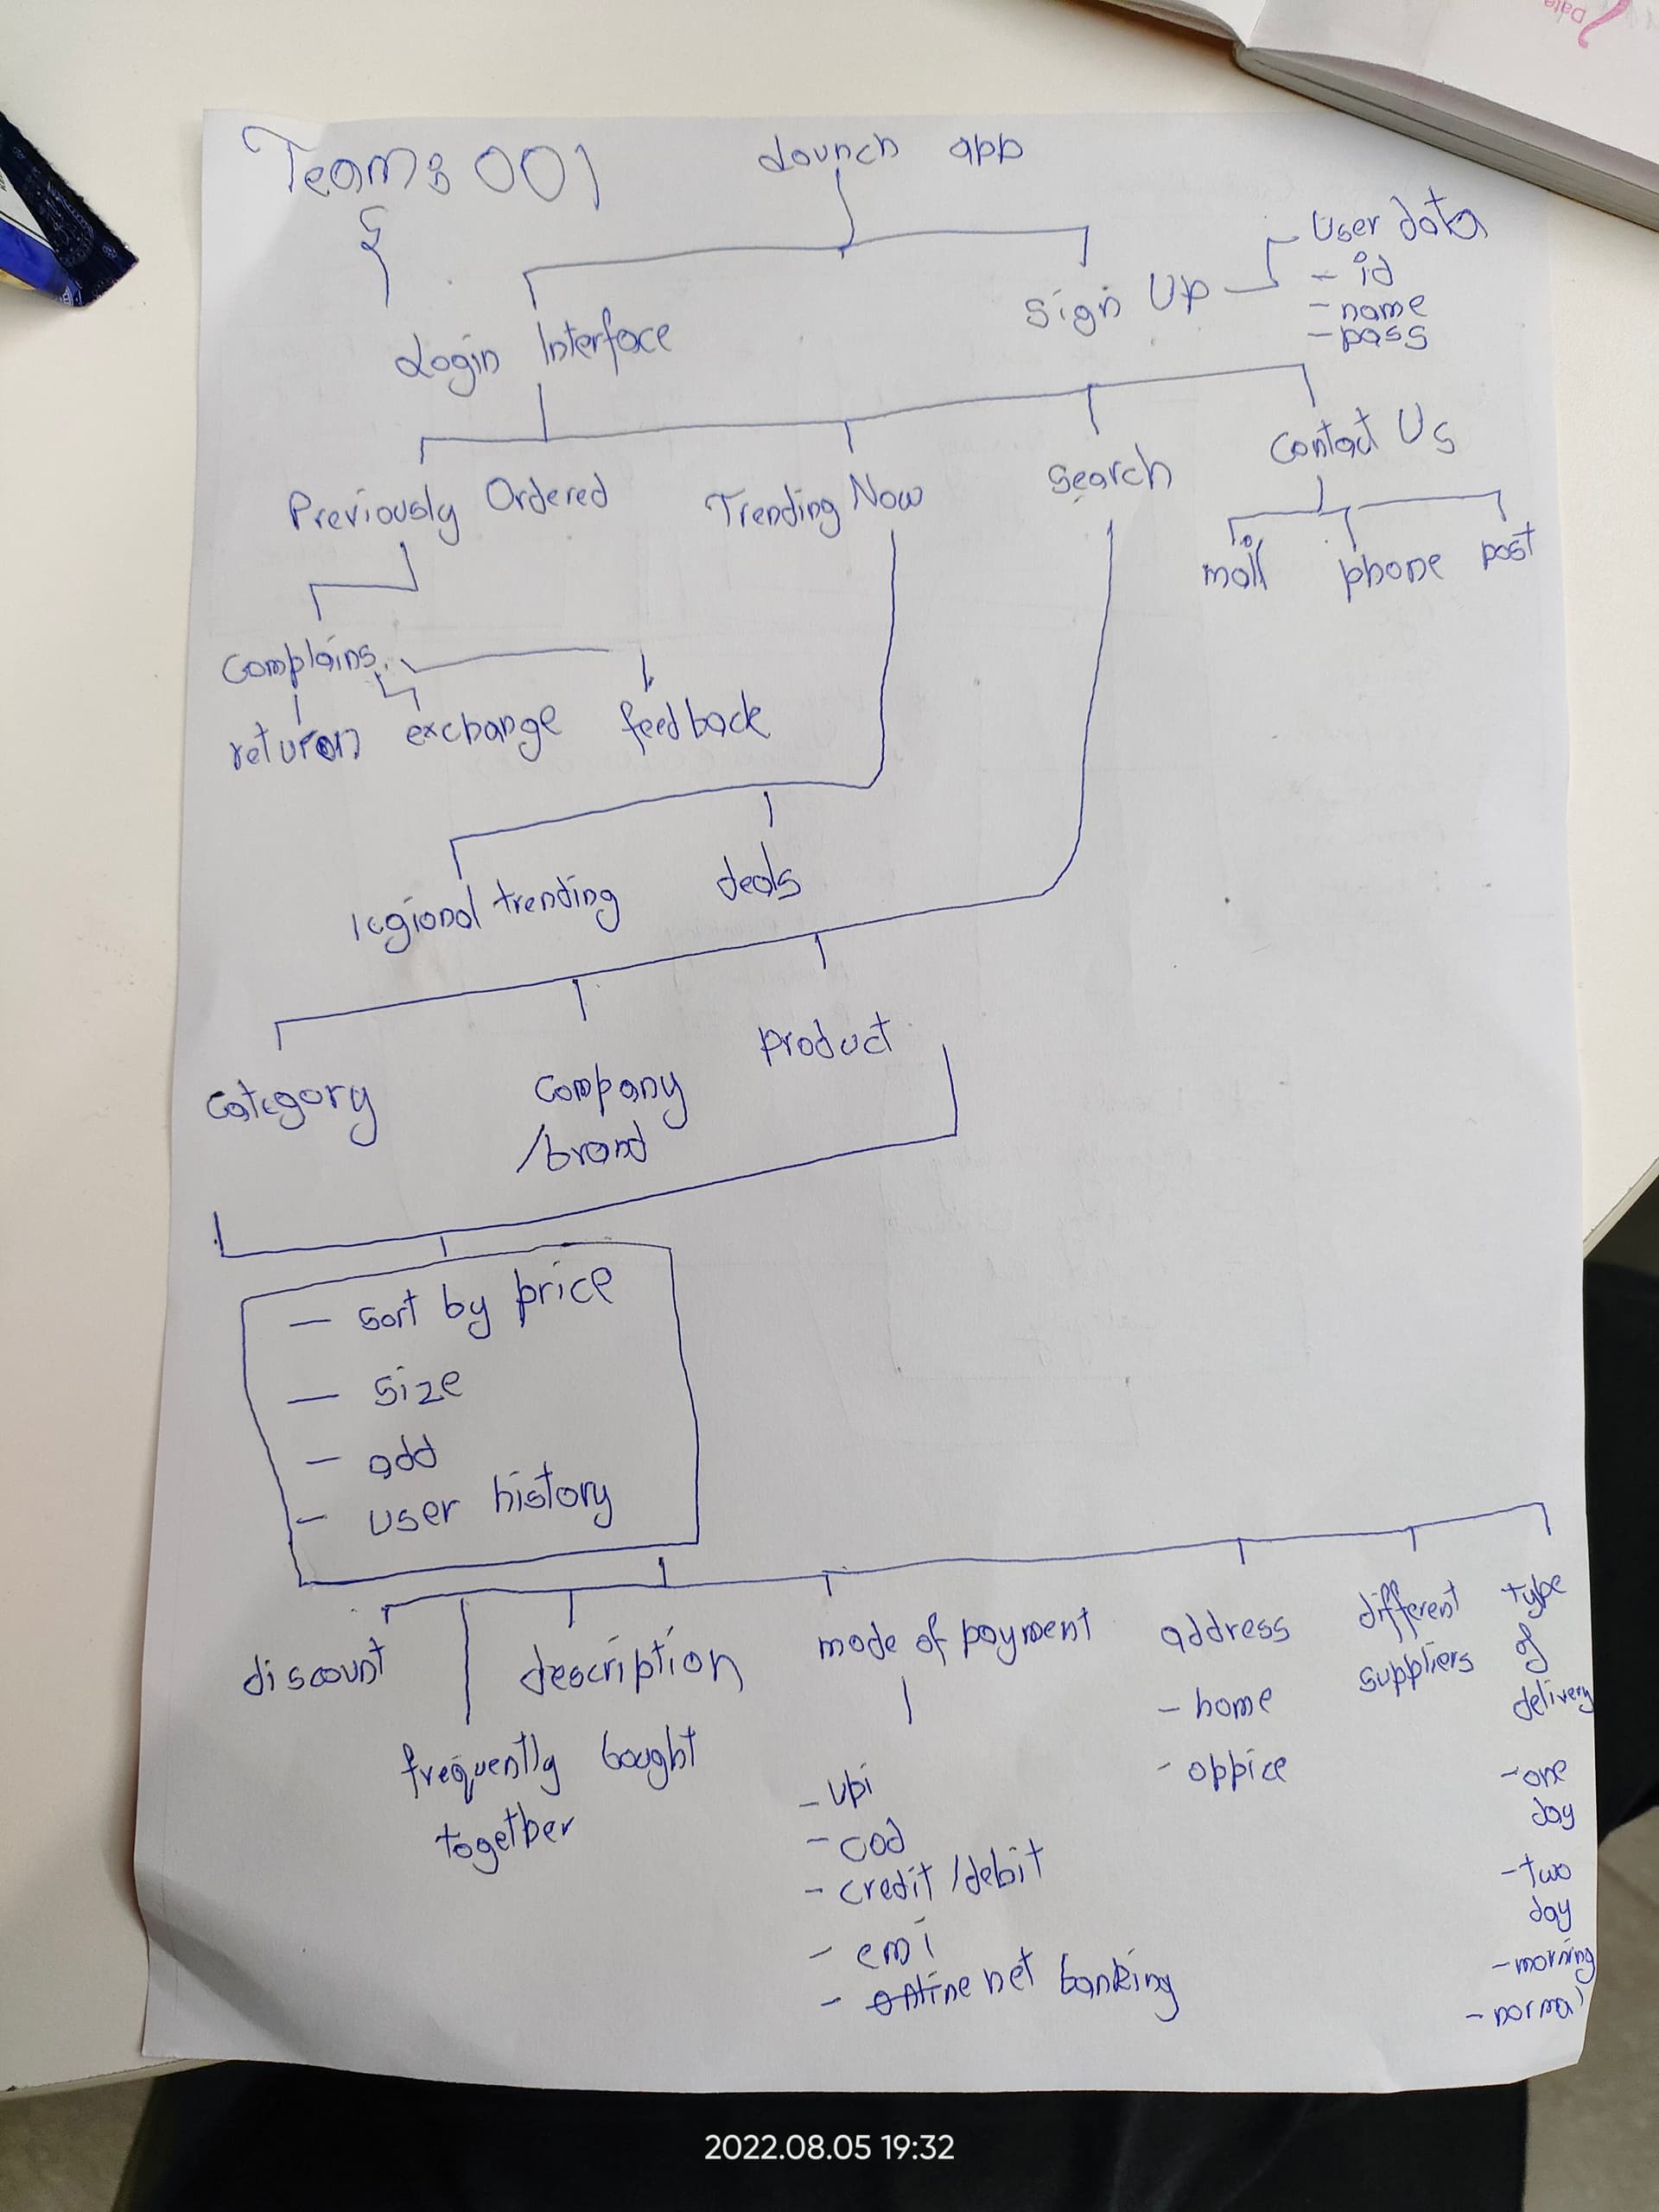 Team: 001
Launch app
User data
- id
- name
- pass
Sign Up
Login Interface
Contact Us
Search
Previously Ordered
Trending Now
mail
phone
post
Complains
return
exchange
feedback
regional trending
deals
Category
Company
/brand
product
- sort by price
- size
- add
- user history
discount
frequently bought
together
description
mode of payment
- upi
- cod
- credit/debit
- emi
- online net banking
address
- home
- oppice
different
suppliers
type
of
delivery
- one
day
- two
day
- morning
- normal
2022.08.05 19:32